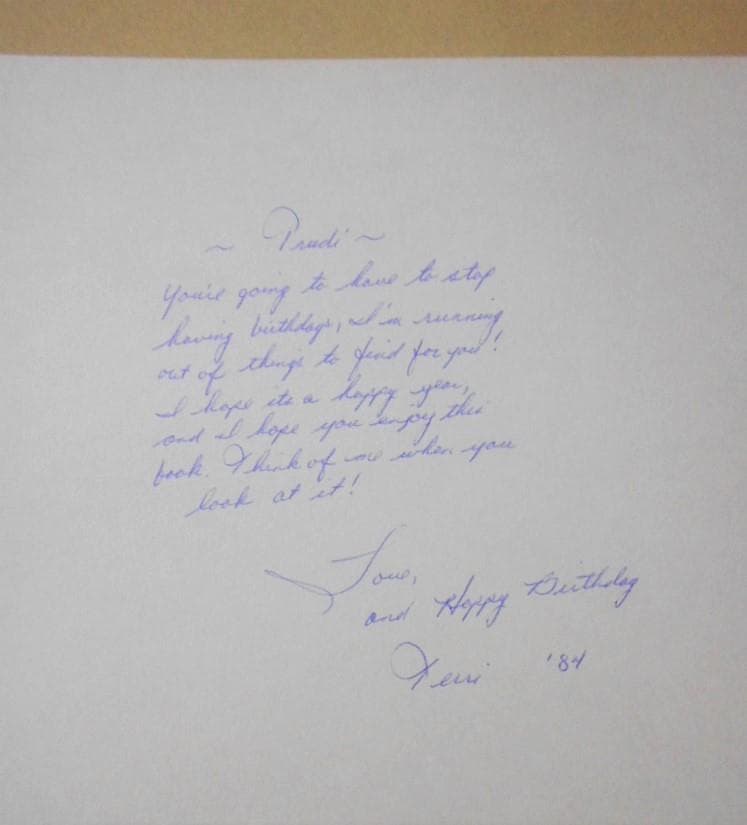 ~ Prudi ~
You're going to have to stop
having birthdays, I'm running
out of things to find for you!
I hope its a happy year,
and I hope you enjoy this
book. Think of me when you
look at it!
Love,
and Happy Birthday
Terri '84